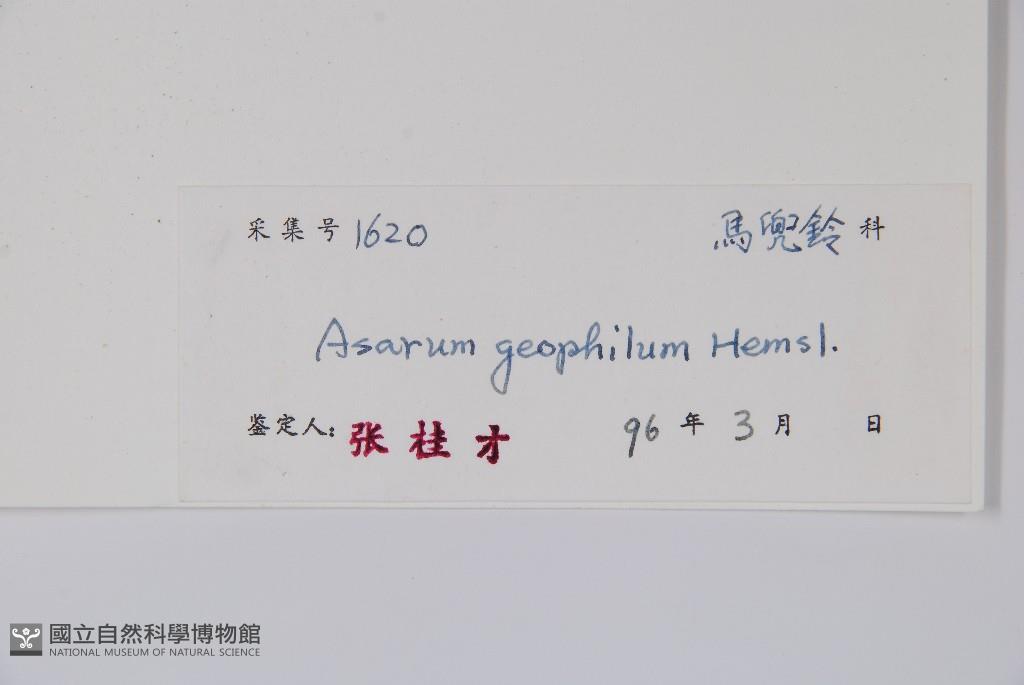 采集号 1620 馬兜鈴 科
Asarum geophilum Hemsl.
鉴定人: 张桂才 96 年 3 月 日
國立自然科學博物館
NATIONAL MUSEUM OF NATURAL SCIENCE